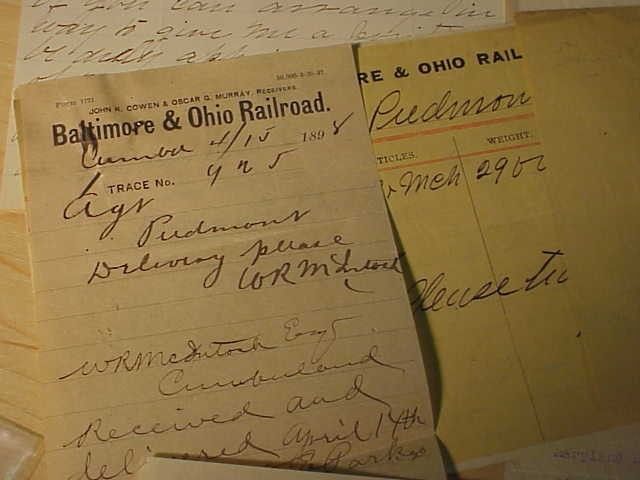 you can arrange in
way to give me a
Form 1721 10,000-4-25-97
JOHN K. COWEN & OSCAR G. MURRAY, RECEIVERS.
Baltimore & Ohio Railroad.
Cumb 4/15 1898
TRACE No. 925
Agt
Piedmont
Delivery please
WRMcIntosh
WRMcIntosh Esq
Cumberland
Received and
delivered April 14th
RE & OHIO RAIL
Piedmon
TICLES. WEIGHT.
Mch 290
Please
Maryland